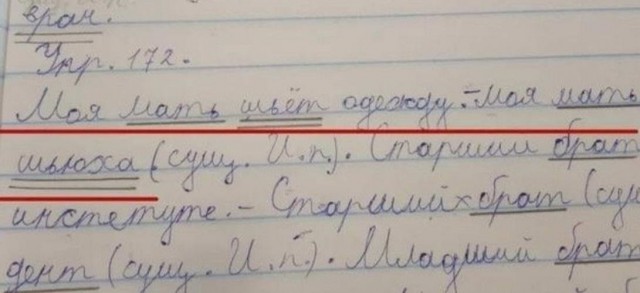 врач.
Упр. 172.
Моя мать шьёт одежду. - Моя мать
шьюха (сущ. И.п.). Старший брат
инстетуте. - Старший брат (сущ
дент (сущ. И.п.). Младший брат